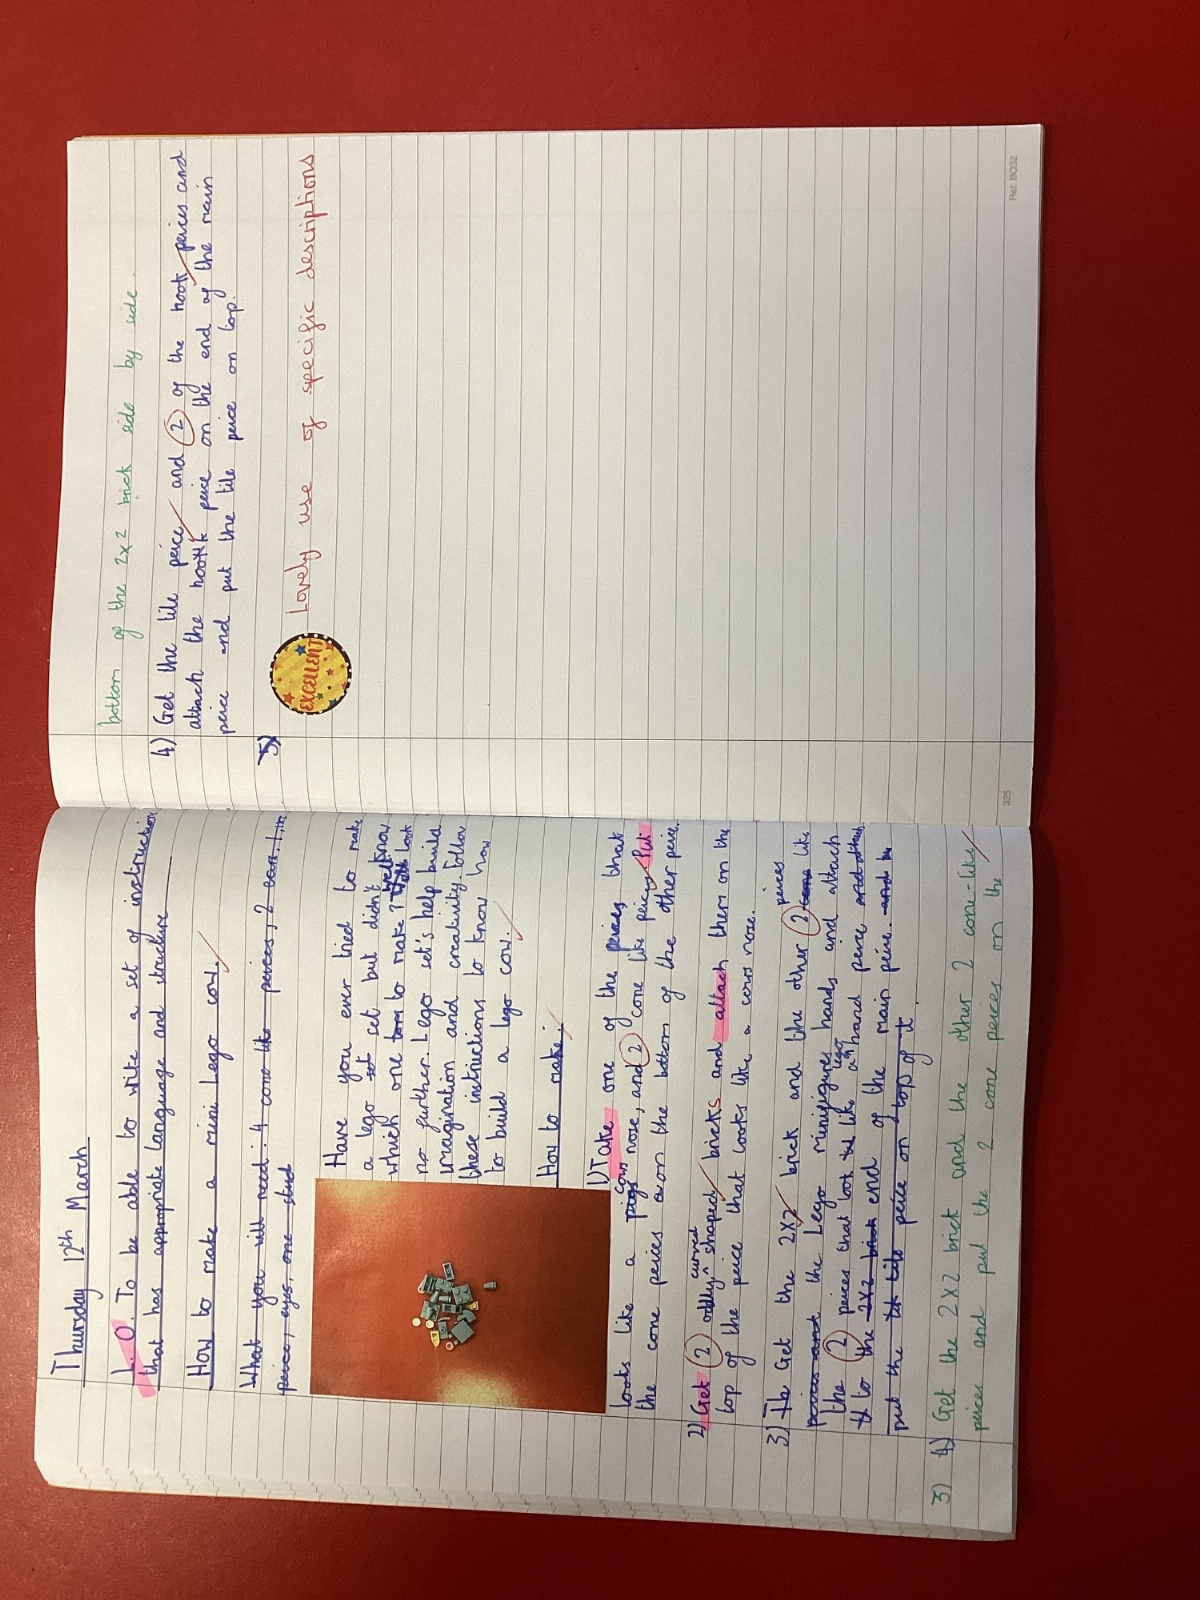 Thursday 12th March
L.O. To be able to write a set of instruction
that has appropriate language and structure
How to make a mini Lego cow.
What you will need: 4 cone like peices, 2
peice, eyes, one stud
Have you ever tried to make
a lego set but didn't know
which one to make? Look
no further. Lego set's help build
imagination and creativity. Follow
these instructions to know how
to build a lego cow.
How to make:
1) Take one of the peices that
looks like a cows nose, and 2 cone like peices. Put
the cone peices on the bottom of the other peice.
2) Get 2 oddly curved shaped bricks and attach them on the
top of the peice that looks like a cows nose.
3) Get the 2x2 brick and the other 2 cone like peices
peices and the Lego minifigures hands and attach
the 2 peices that look like a lego hand peice and attach
to the 2x2 brick end of the main peice. and
put the tile peice on top of it
3) 4) Get the 2x2 brick and the other 2 cone-like
peices and put the 2 cone peices on the
bottom of the 2x2 brick side by side.
4) Get the tile peice and 2 of the hook peices and
attach the hook peice on the end of the main
peice and put the tile peice on top.
5)
EXCELLENT
Lovely use of specific descriptions
325
Ref: BO32